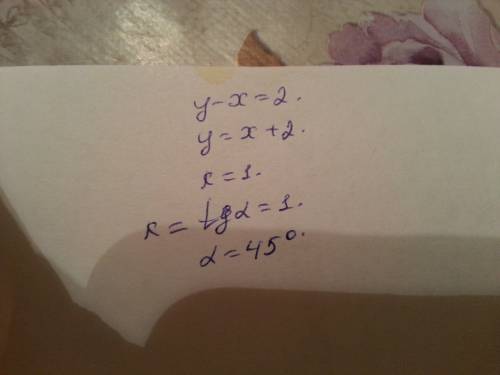 y-x=2.
y=x+2.
к=1.
к=tgα=1.
α=45°.